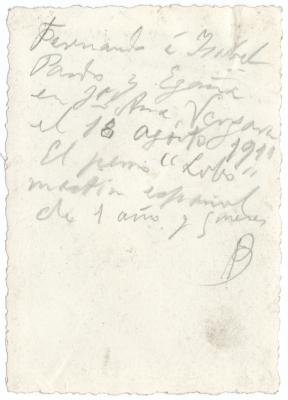 Fernando é Isabel
Pardo y Egaña
en Ana Vergara
el 18 agosto 1911
El perro "Lobo"
mastín español
de 1 año y 5 meses